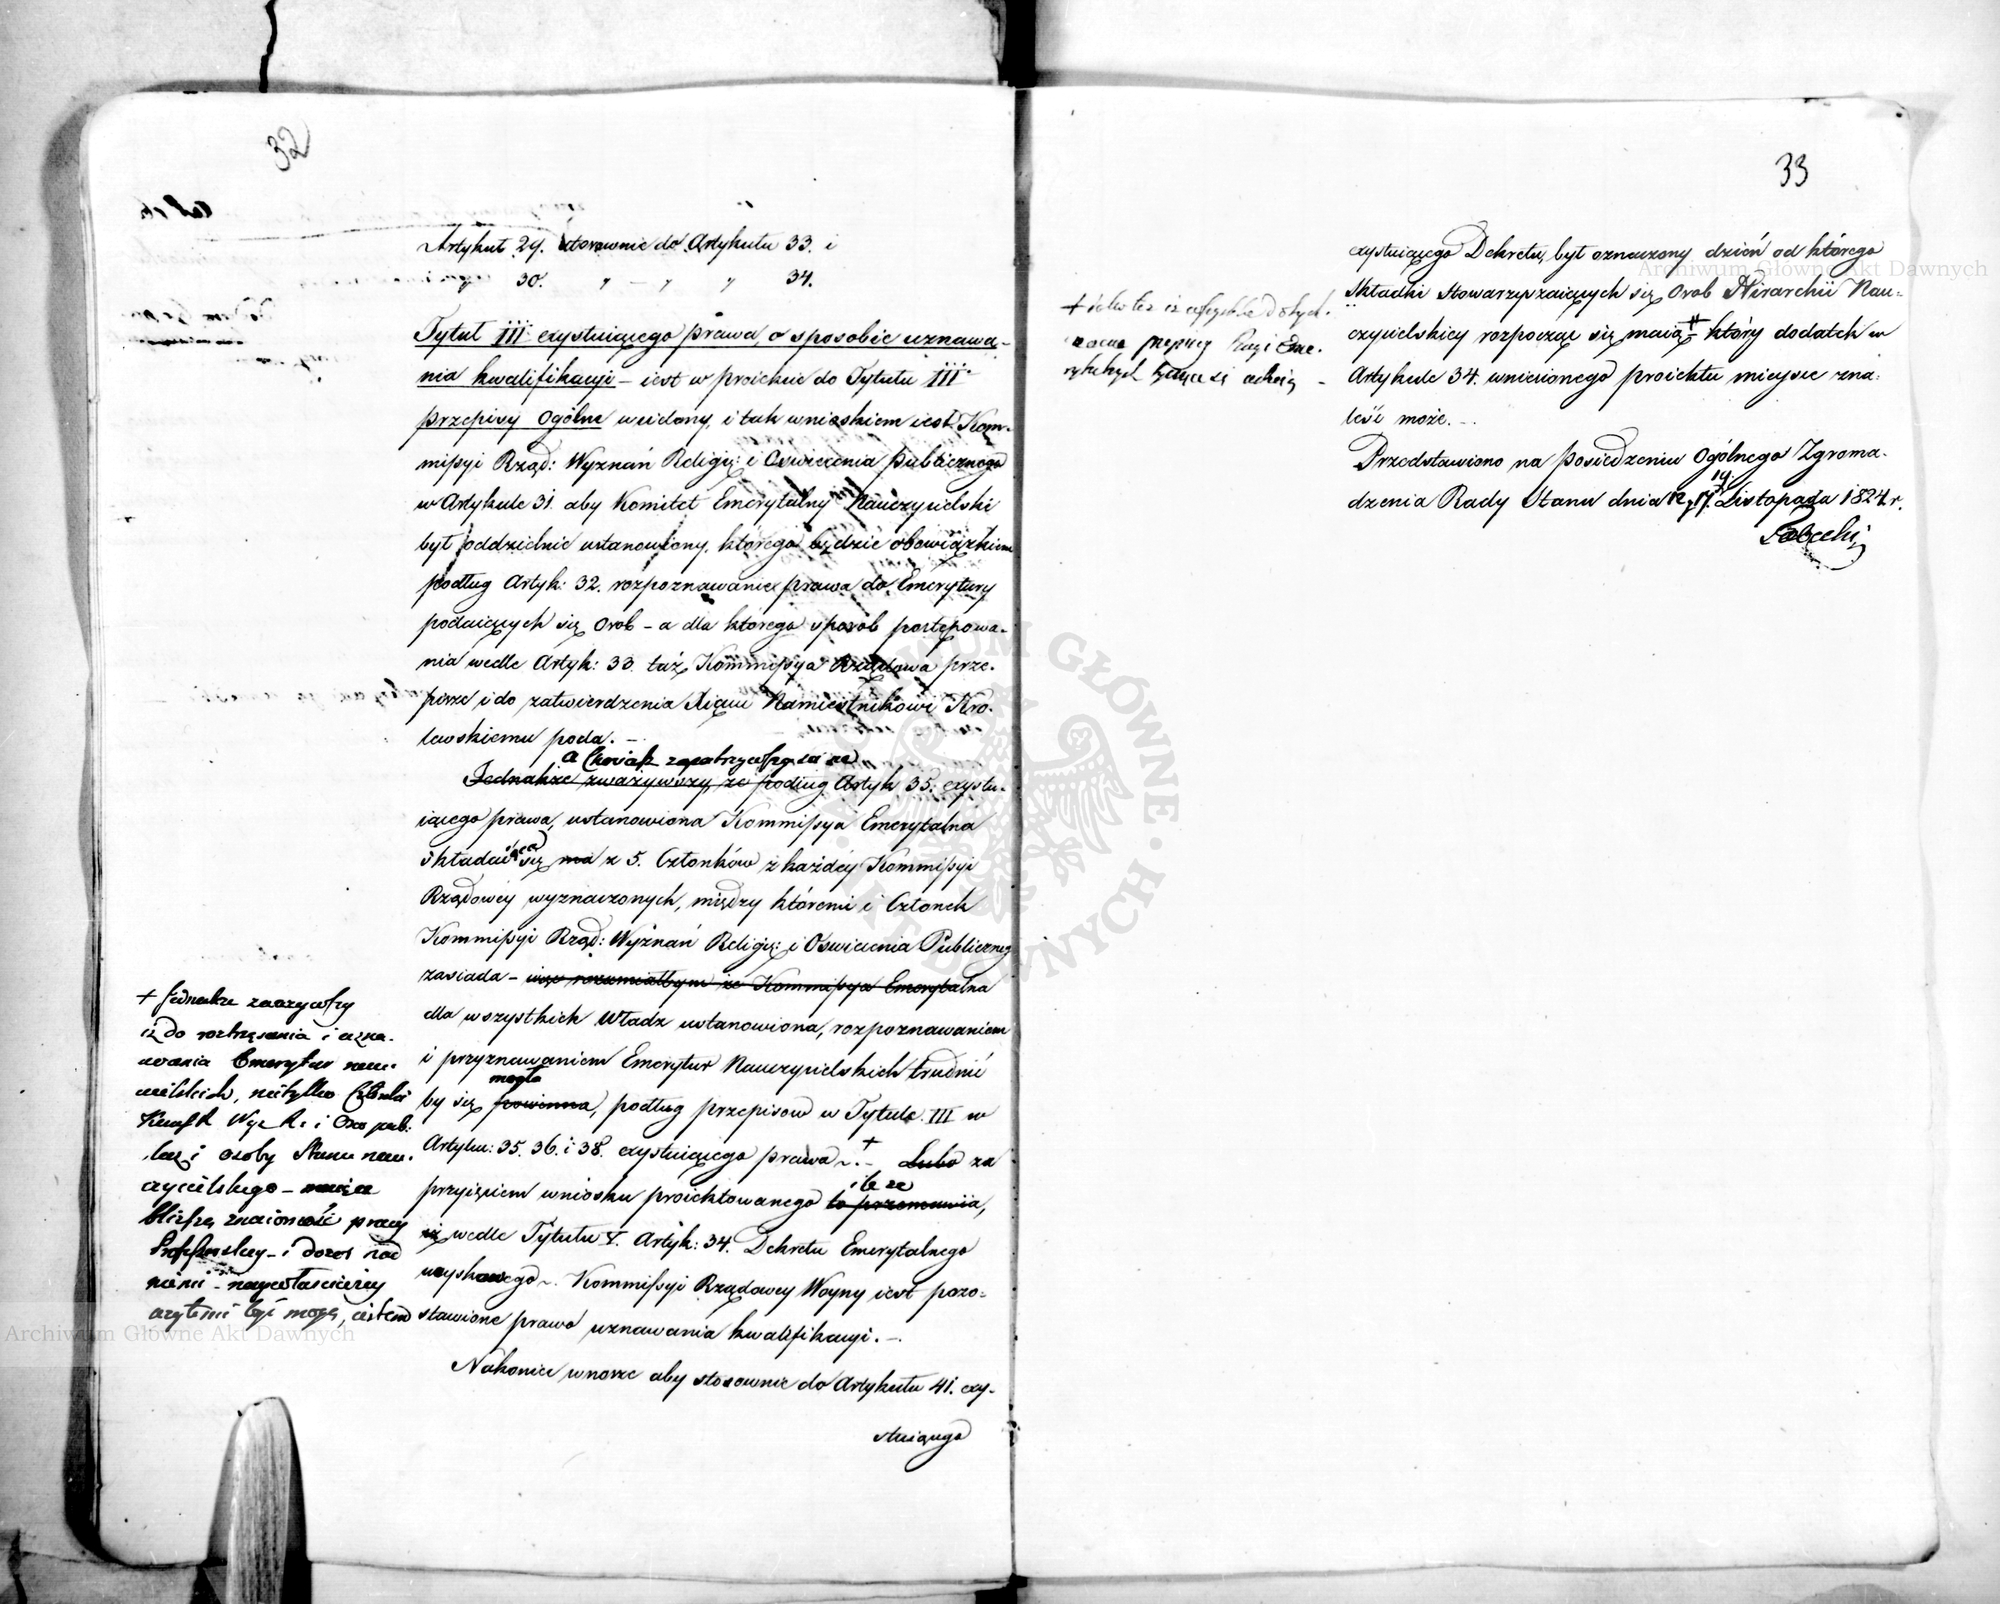 32
Artykuł 29. stosownie do Artykułu 33. i
30. " — " " 34.
Tytuł III exystuiącego prawa, o sposobie uznawa-
nia kwalifikacyi – iest w proiekcie do Tytułu III
przepisy Ogólne wcielony, i tak wnioskiem iest Kom-
missyi Rząd: Wyznań Religiy: i Oświecenia Publicznego
w Artykule 31. aby Komitet Emerytalny Nauczycielski
był oddzielnie ustanowiony, którego będzie obowiązkiem
podług Artyk: 32. rozpoznawanie prawa do Emerytury
podaiących się Osob – a dla którego sposób postępowa-
nia wedle Artyk: 33. taż Kommissya Rządowa prze-
pisze i do zatwierdzenia Xięciu Namiestnikowi Kró-
lewskiemu poda. –
a
Jednakże zważywszy, że podług Artyk 35. exystu-
iącego prawa, ustanowiona Kommissya Emerytalna
składaiąca się ma z 5. Członków z każdey Kommissyi
Rządowey wyznaczonych, między któremi i Członek
Kommissyi Rząd: Wyznań Religiy: i Oświecenia Publiczneg
zasiada – więc rozumiałbym że Kommissya Emerytalna
dla wszystkich Władz ustanowiona, rozpoznawaniem
i przyznawaniem Emerytur Nauczycielskich trudnić
mogła
by się powinna, podług przepisow w Tytule III w
Artyku: 35. 36. i 38. exystuiącego prawa ~. + – Lubo za
przyięciem wniosku proiektowanego to przemawia,
ile że
iż wedle Tytułu V. Artyk: 34. Dekretu Emerytalnego
woyskowego ~. Kommissyi Rządowey Woyny iest pozo-
stawione prawo uznawania kwalifikacyi. –
Nakoniec wnoszę aby stosownie do Artykułu 41. exy-
stuiącego
+ Jednakże zważywszy
iż do roztrząsania i uzna-
wania Emerytur nau-
cielskich, nietylko Członki
i osoby Stanu nau-
czycielskiego –
bliższą znaiomość pracy
Professorskiey – i dozor nad
niemi – naywłaściwiey
użytemi być mogą,
33
exystuiącego Dekretu, był oznaczony dzień od którego
składki stowarzyszaiących się Osob Hirarchii Nau-
czycielskiey rozpocząć się maią # – który dodatek w
Artykule 34. wniesionego proiektu mieysce zna-
leść może. –
Przedstawiono na posiedzeniu Ogólnego Zgroma-
dzenia Rady Stanu dnia 12, 17. 19 Listopada 1824. r.
Archiwum Główne Akt Dawnych
Archiwum Główne Akt Dawnych
ARCHIWUM GŁÓWNE AKT DAWNYCH